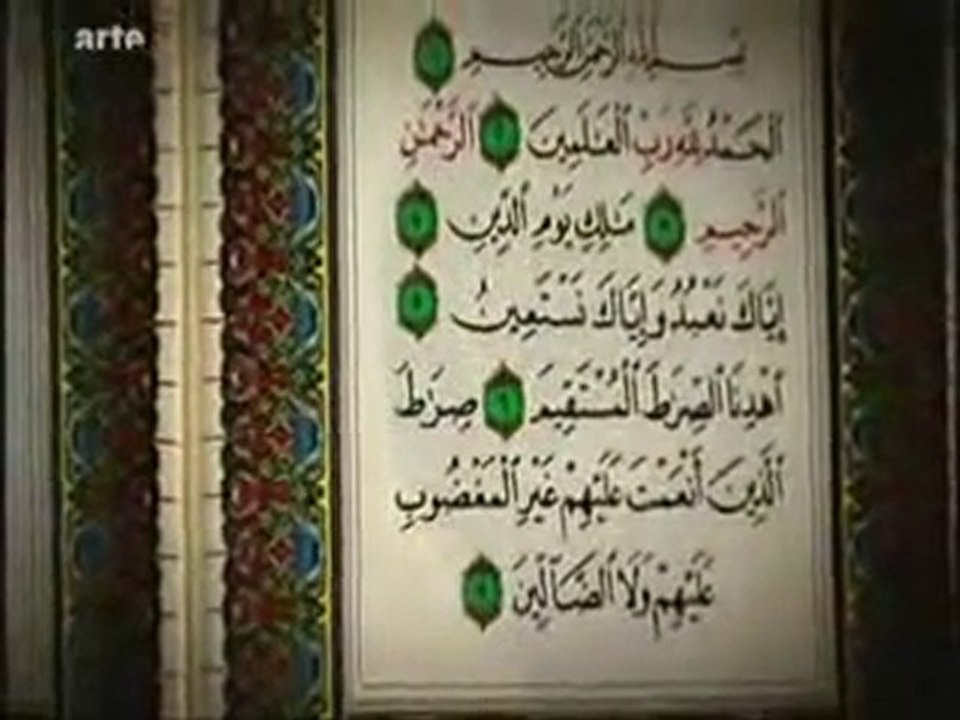 arte
بسم الله الرحمن الرحيم ١
ٱلْحَمْدُ لِلَّهِ رَبِّ ٱلْعَـٰلَمِينَ ٢ ٱلرَّحْمَـٰنِ
ٱلرَّحِيمِ ٣ مَـٰلِكِ يَوْمِ ٱلدِّينِ ٤
إِيَّاكَ نَعْبُدُ وَإِيَّاكَ نَسْتَعِينُ ٥
ٱهْدِنَا ٱلصِّرَٰطَ ٱلْمُسْتَقِيمَ ٦ صِرَٰطَ
ٱلَّذِينَ أَنْعَمْتَ عَلَيْهِمْ غَيْرِ ٱلْمَغْضُوبِ
عَلَيْهِمْ وَلَا ٱلضَّآلِّينَ ٧